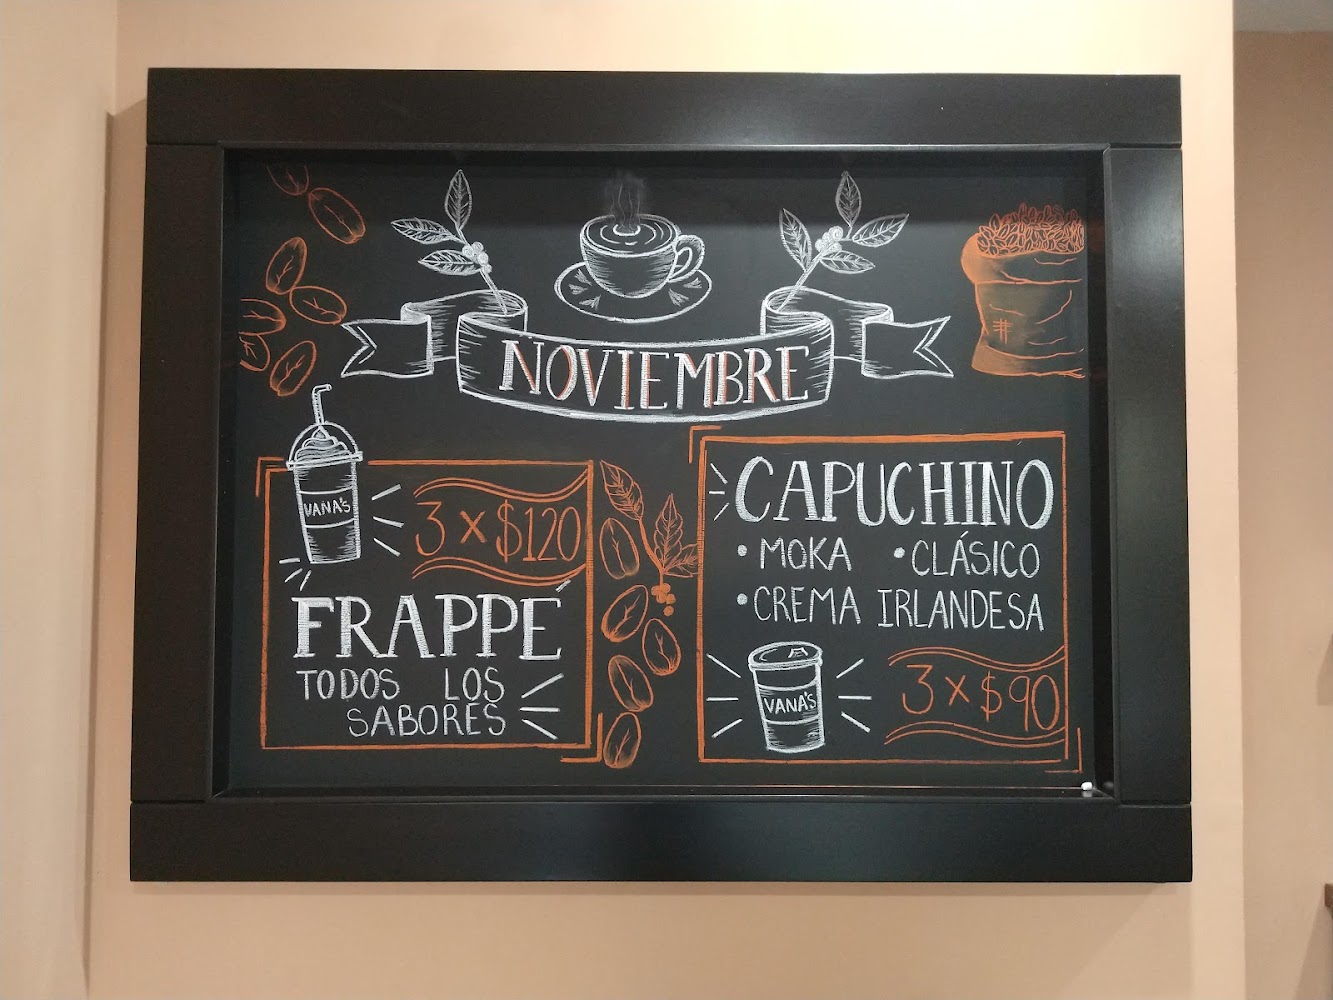 NOVIEMBRE
VANA'S
3 x $120
FRAPPÉ
TODOS LOS
SABORES
CAPUCHINO
• MOKA • CLÁSICO
• CREMA IRLANDESA
VANA'S
3 x $90